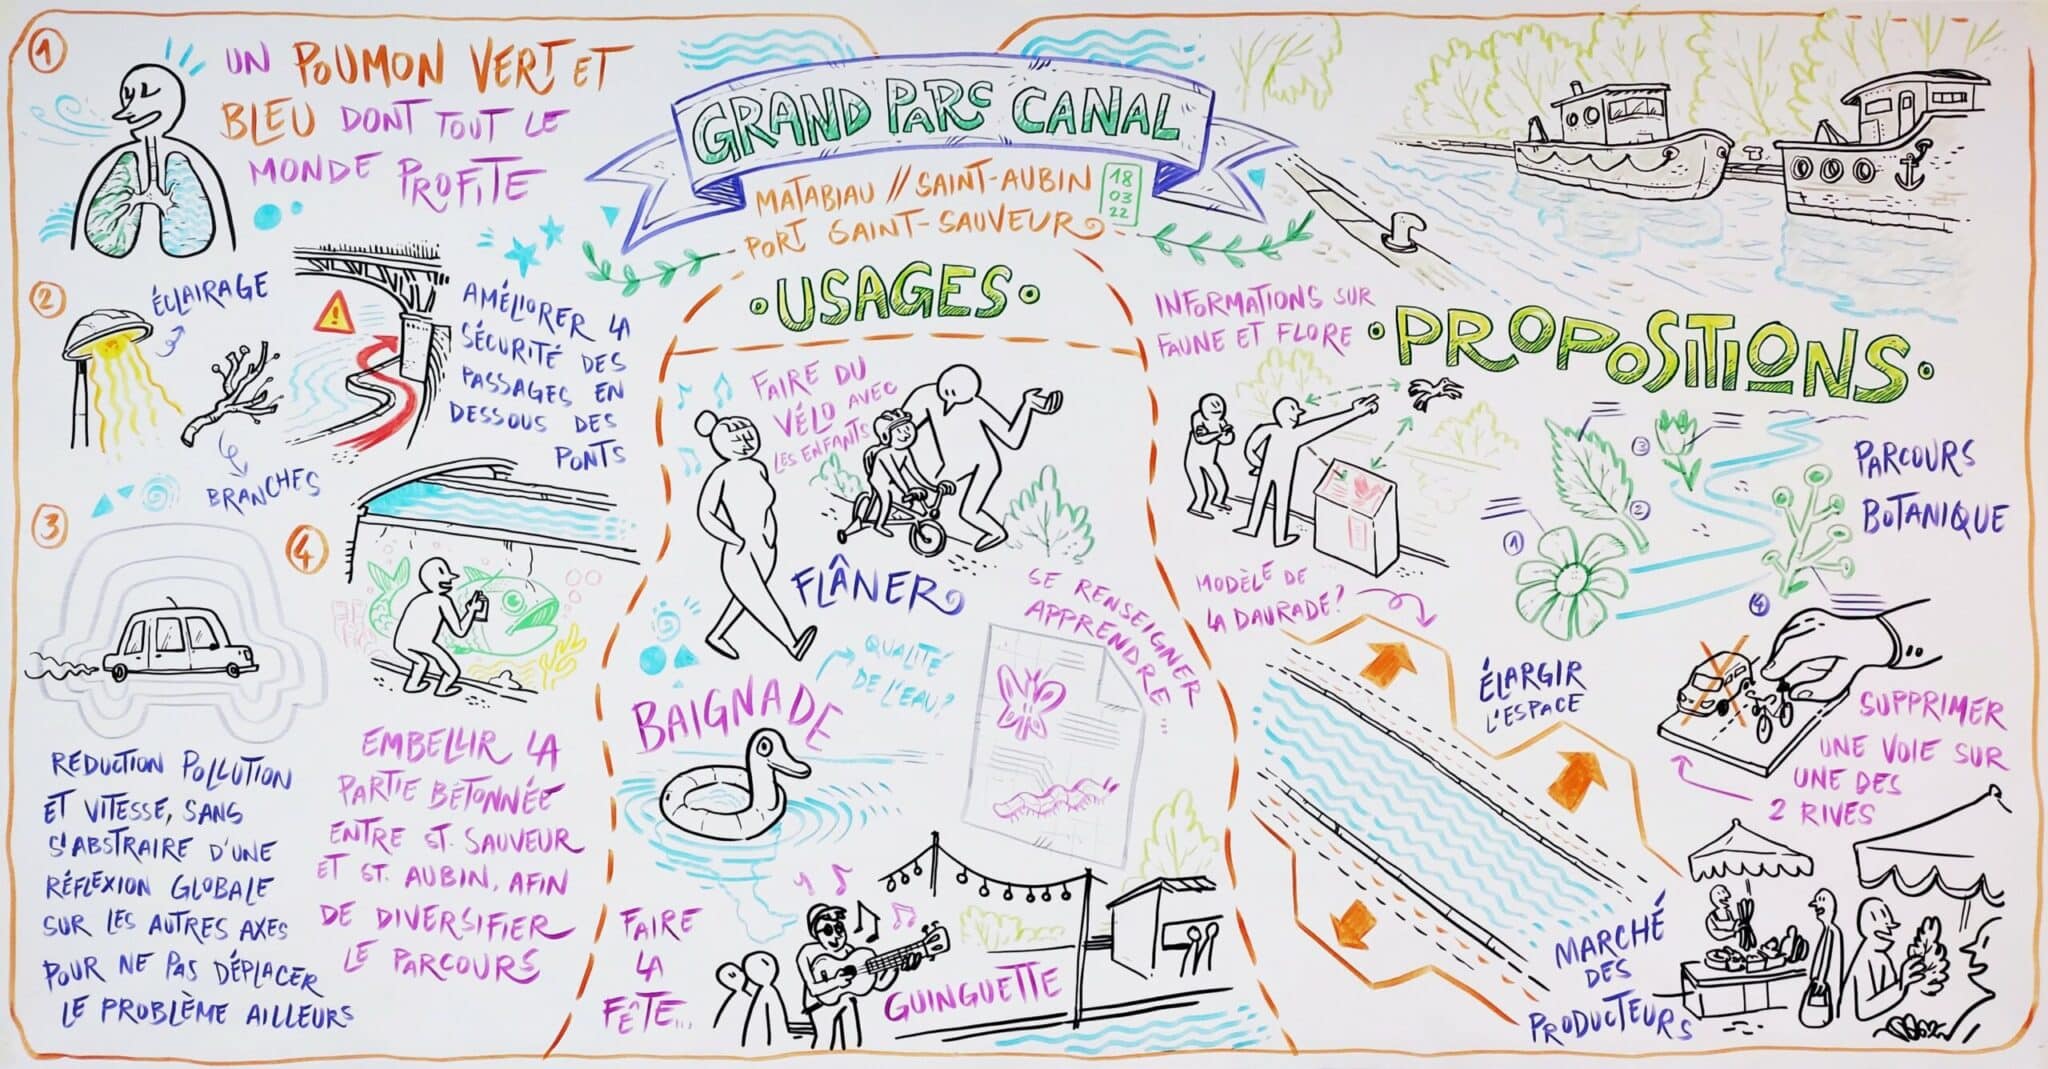 GRAND PARC CANAL
MATABIAU // SAINT-AUBIN
PORT SAINT-SAUVEUR
18
03
22
1
UN POUMON VERT ET
BLEU DONT TOUT LE
MONDE PROFITE
2
ÉCLAIRAGE
BRANCHES
!
AMÉLIORER LA
SÉCURITÉ DES
PASSAGES EN
DESSOUS DES
PONTS
3
REDUCTION POLLUTION
ET VITESSE, SANS
S'ABSTRAIRE D'UNE
RÉFLEXION GLOBALE
SUR LES AUTRES AXES
POUR NE PAS DÉPLACER
LE PROBLÈME AILLEURS
4
EMBELLIR LA
PARTIE BÉTONNÉE
ENTRE ST. SAUVEUR
ET ST. AUBIN, AFIN
DE DIVERSIFIER
LE PARCOURS
USAGES
FAIRE DU
VÉLO AVEC
LES ENFANTS
FLÂNER
SE RENSEIGNER
APPRENDRE...
BAIGNADE
QUALITÉ
DE L'EAU?
FAIRE
LA
FÊTE...
GUINGUETTE
PROPOSITIONS
INFORMATIONS SUR
FAUNE ET FLORE
PARCOURS
BOTANIQUE
1
2
3
4
MODÈLE DE
LA DAURADE?
ÉLARGIR
L'ESPACE
SUPPRIMER
UNE VOIE SUR
UNE DES
2 RIVES
MARCHÉ
DES
PRODUCTEURS